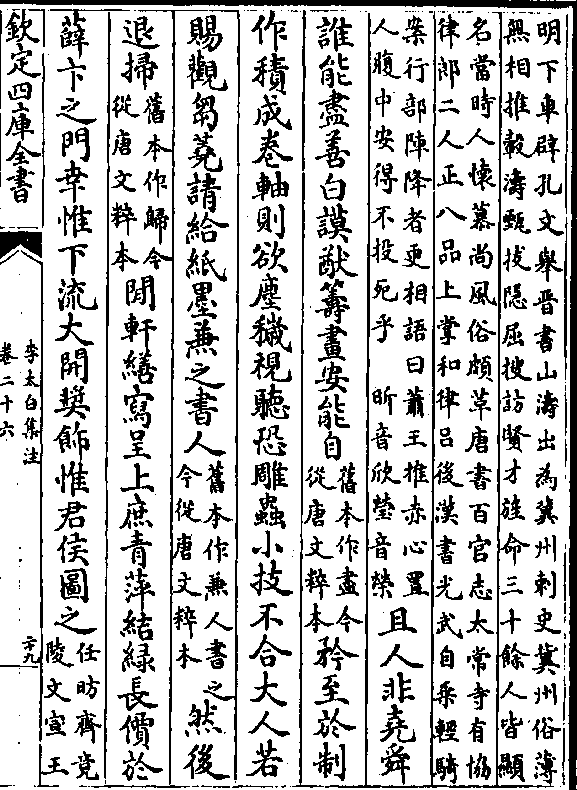 明下車辟孔文舉晉書山濤出為冀州刺史冀州俗薄
無相推轂濤甄拔隱屈搜訪賢才旌命三十餘人皆顯
名當時人懷慕尚風俗頗革唐書百官志太常寺有協
律郎二人正八品上掌和律呂後漢書光武自乗輕騎
案行部陣降者更相語曰蕭王推赤心置
人腹中安得不投死乎　昕音欣瑩音榮
且人非堯舜
誰能盡善白謨猷籌畫安能自
舊本作盡今
從唐文粹本
矜至於制
作積成卷軸則欲塵穢視聽恐雕蟲小技不合大人若
賜觀芻蕘請給紙墨兼之書人
舊本作兼人書之
今從唐文粹本
然後
退掃
舊本作歸今
從唐文粹本
閒軒繕寫呈上庶青萍結綠長價於
薛卞之門幸惟下流大開奬飾惟君侯圖之
任昉齊竟
陵文宣王
欽定四庫全書
李太白集注
卷二十六
二十九